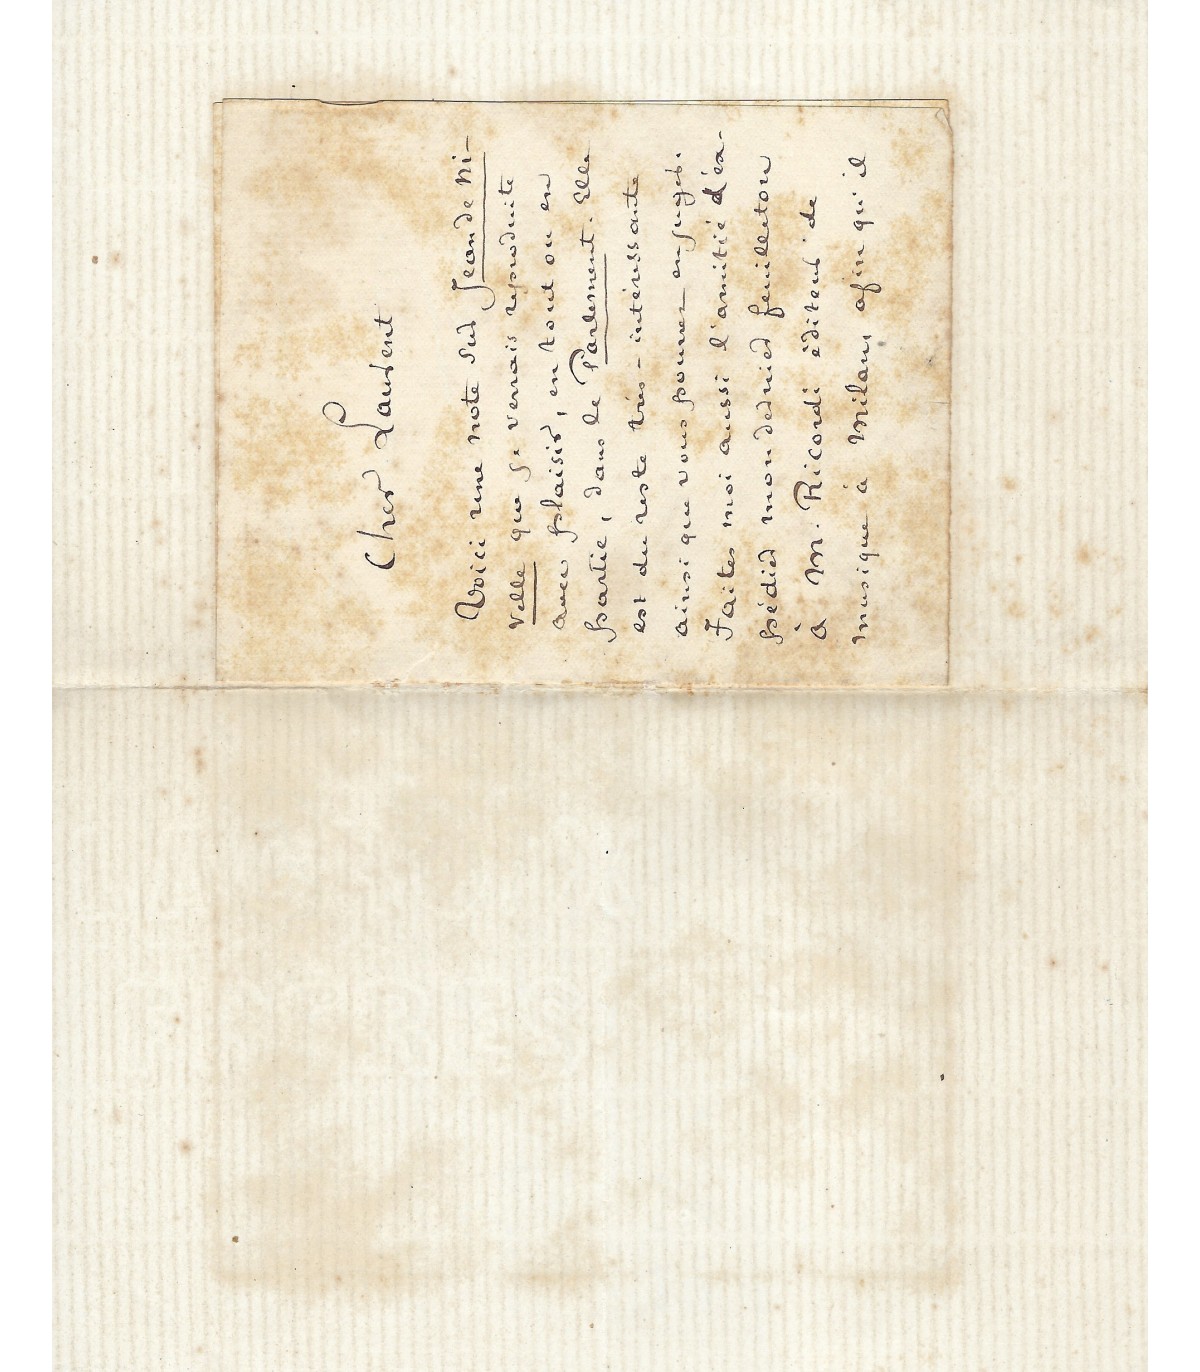 Cher Laurent
Voici une note sur Jean de Ni-
velle que je verrais reproduite
avec plaisir, en tout ou en
partie, dans le Parlement. Elle
est du reste très-intéressante
ainsi que vous pourrez en juger.
Faites moi aussi l'amitié d'ex-
pédier mon dernier feuilleton
à M. Ricordi éditeur de
musique à Milan afin qu'il